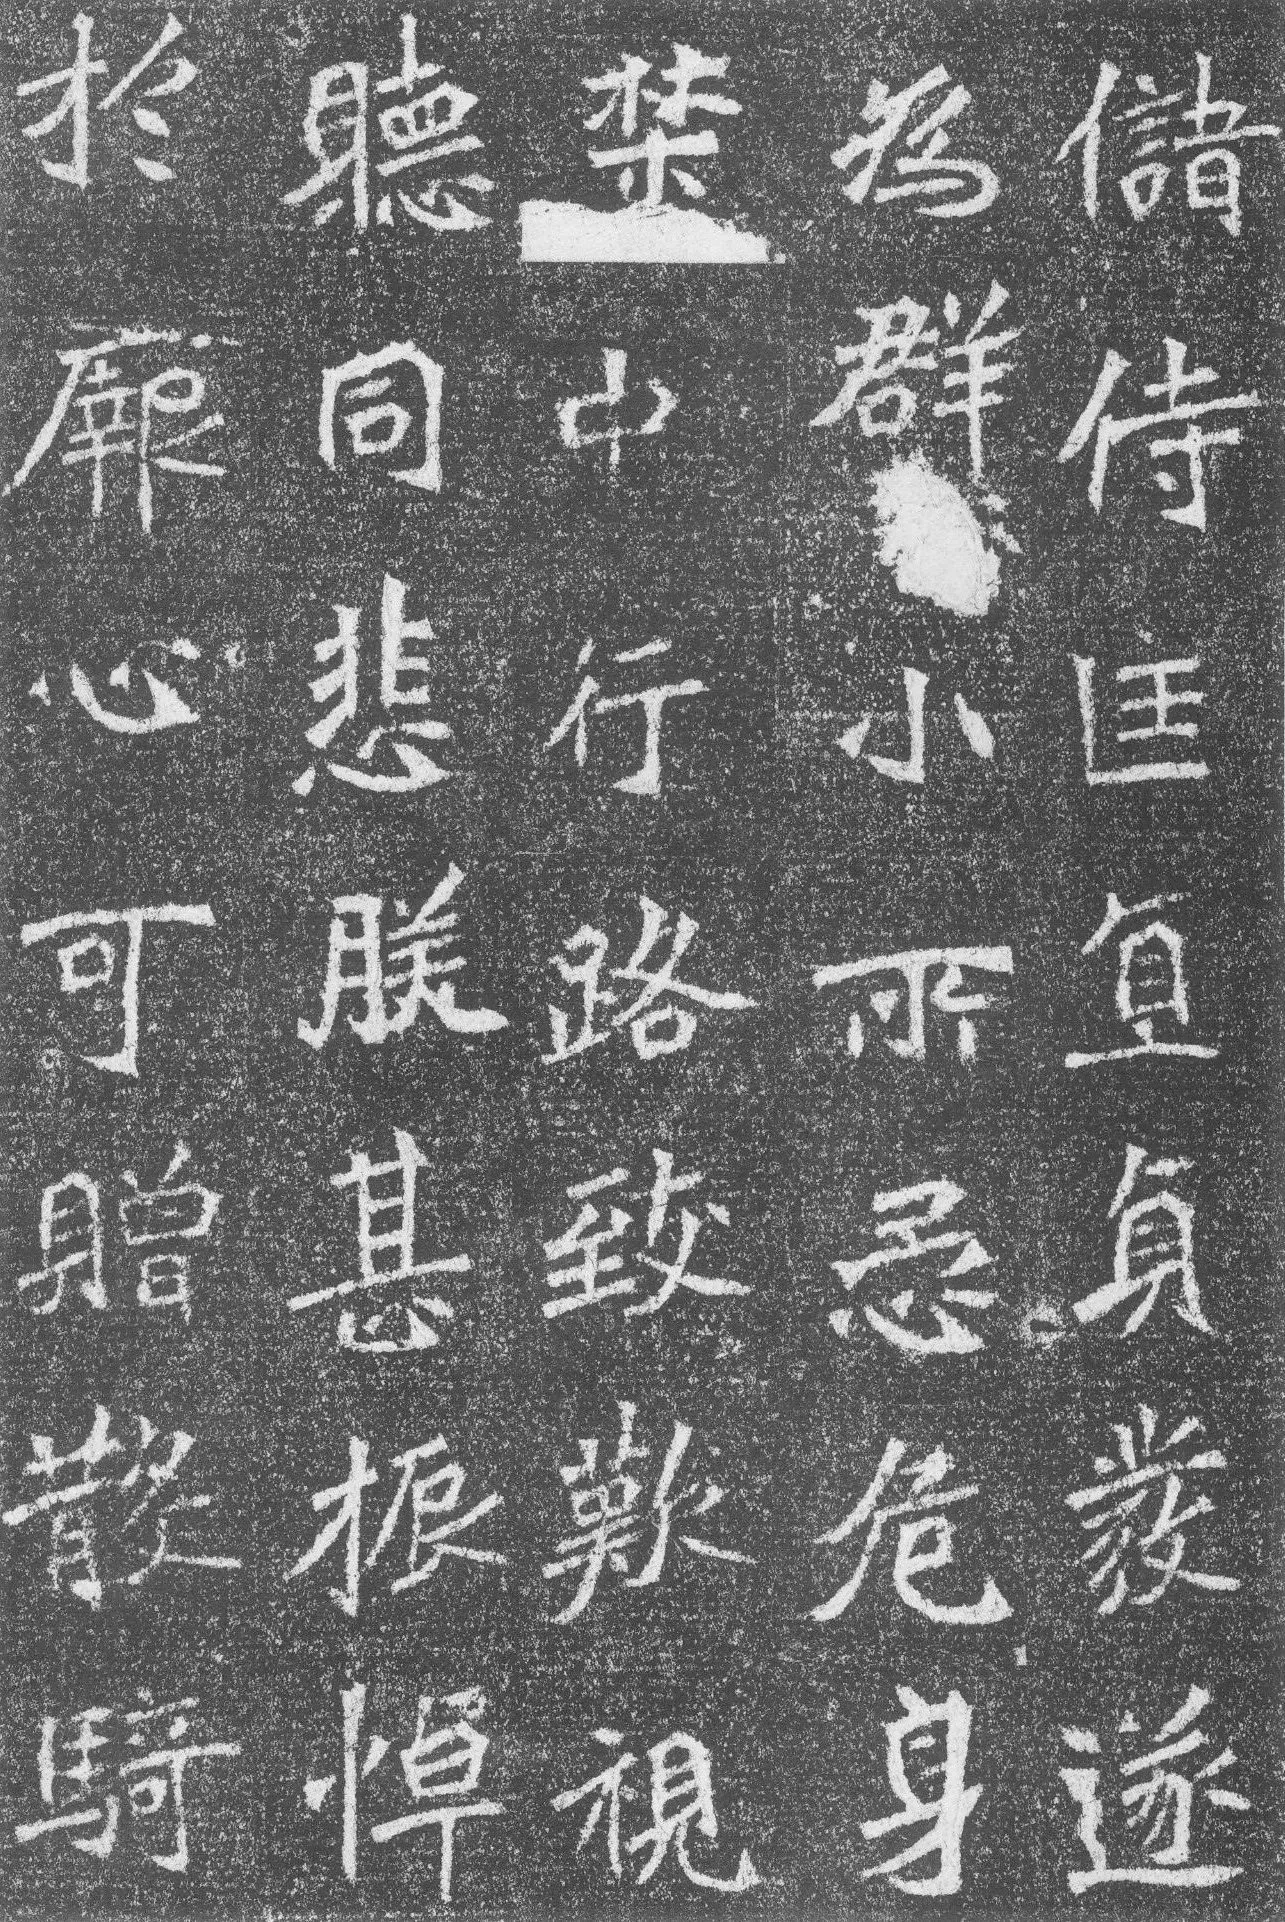 儲侍匡直貞發遂
為群小所忌危身
禁中行路致歎視
聽同悲朕甚振悼
於厥心可贈散騎